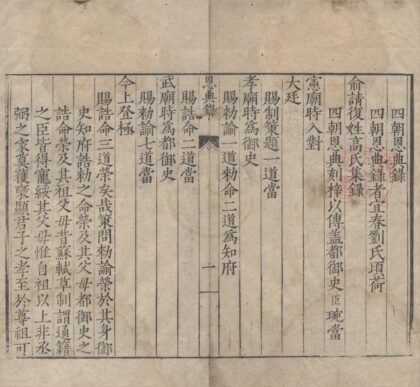 四朝恩典錄
四朝恩典錄者宜春劉氏頃荷
俞請復姓髙氏集錄
四朝恩典刻梓以傳盖都御史臣琬當
憲廟時入對
大廷
賜制策題一道當
孝廟時為御史
賜勑諭一道勑命二道為知府
恩典錄
一
賜誥命二道當
武廟時為都御史
賜勑諭七道當
今上登極
賜誥命三道榮矣哉策問勑諭榮於其身御
史知府誥勑之命榮及其父母都御史之
誥命榮及其祖父母昔蘇軾草制謂通籍
之臣皆得寵綏其父母惟自祖以上非丞
弼之家莫獲褒顯君子之孝至於尊祖可